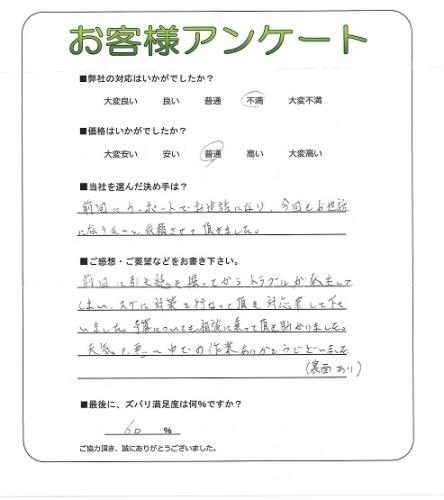 お客様アンケート
■弊社の対応はいかがでしたか？
大変良い 良い 普通 不満 大変不満
■価格はいかがでしたか？
大変安い 安い 普通 高い 大変高い
■当社を選んだ決め手は？
前回にカーポートでお世話になり、今回もお世話
になろうと 依頼させて頂きました。
■ご感想・ご要望などをお書き下さい。
前回に引き続き 掘ってから トラブルが発生して
しまい、スグに対策を行なって頂き対応をして下さ
いました。予算についても相談に乗って頂き助かりました。
天気の悪い中での作業ありがとうございました
(裏面あり)
■最後に、ズバリ満足度は何%ですか？
60 %
ご協力頂き、誠にありがとうございました。